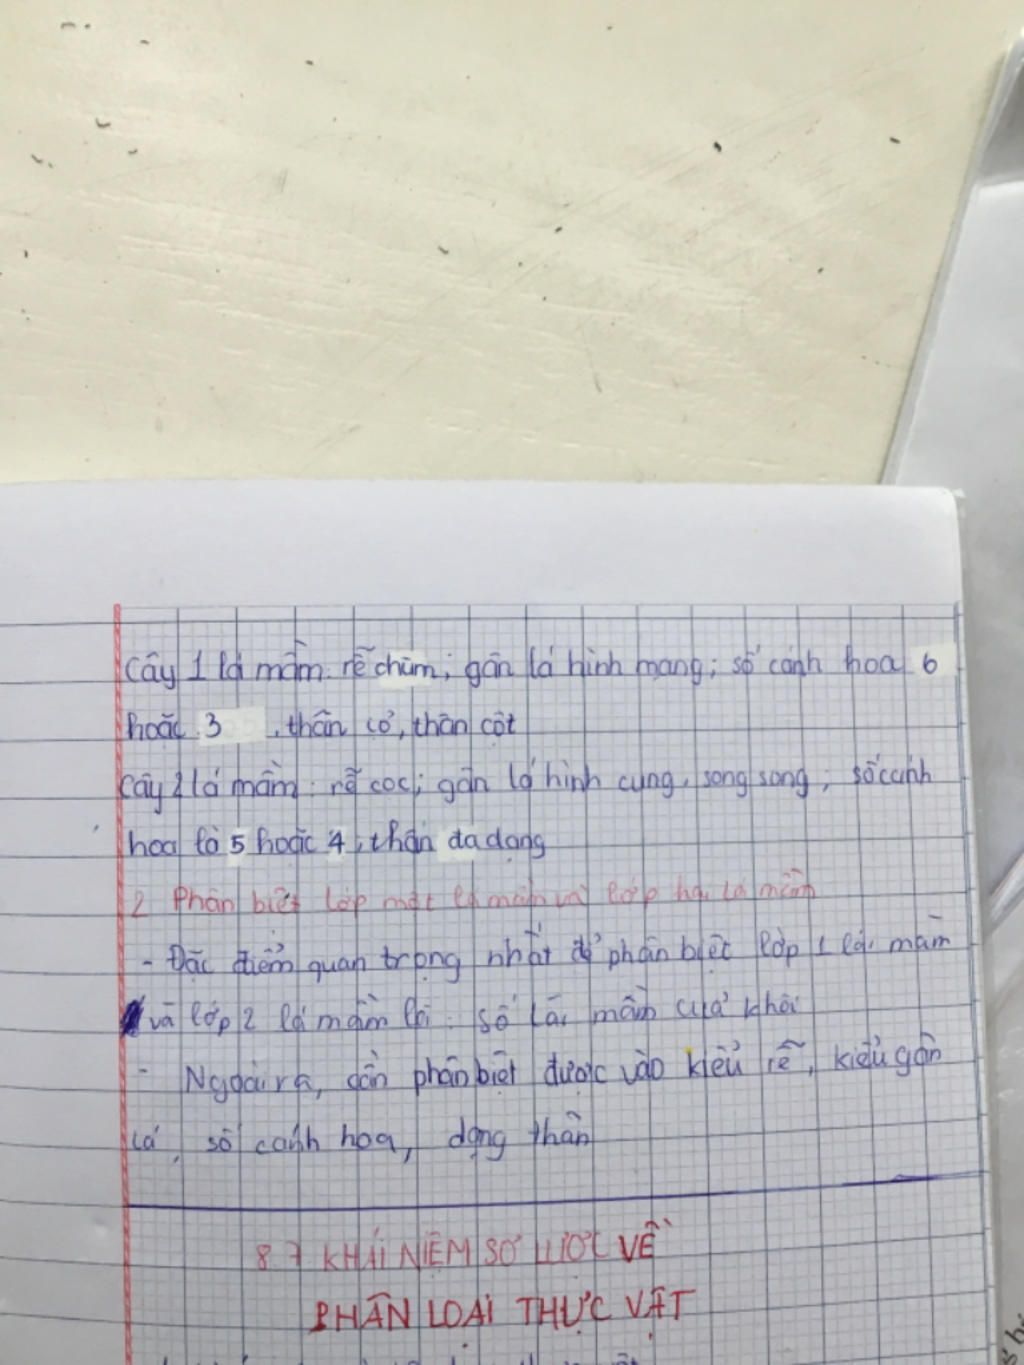 Cây 1 lá mầm: rễ chùm; gân lá hình mạng; số cánh hoa 6
hoặc 3 , thân cỏ, thân cột
Cây 2 lá mầm: rễ cọc; gân lá hình cung, song song; số cánh
hoa là 5 hoặc 4, thân đa dạng
2 Phân biệt lớp một lá mầm và lớp hai lá mầm
- Đặc điểm quan trọng nhất để phân biệt lớp 1 lá mầm
và lớp 2 lá mầm là: số lá mầm của khôi
- Ngoài ra, còn phân biệt được vào kiểu rễ, kiểu gân
lá, số cánh hoa, dạng thân
8 7 KHÁI NIỆM SƠ LƯỢC VỀ
PHÂN LOẠI THỰC VẬT